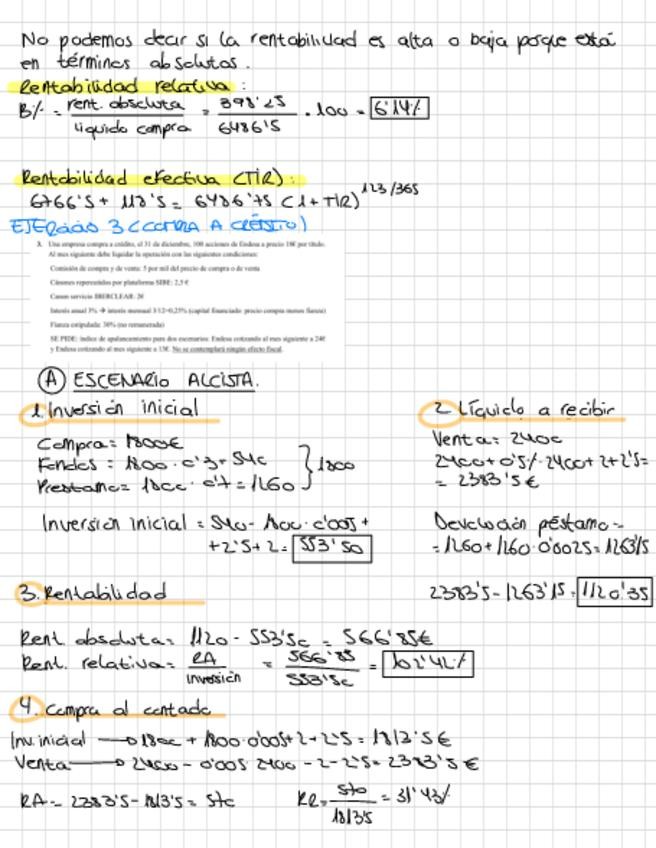 No podemos decir si la rentabilidad es alta o baja porque está
en términos absolutos.
Rentabilidad relativa:
B% = rent. absoluta / líquido compra = 398'25 / 6486'5 · 100 = 6'14%
Rentabilidad efectiva (TIR):
6766'5 + 118'5 = 6486'75 (1 + TIR)^123/365
EJERCICIO 3 (COMPRA A CRÉDITO)
3. Una empresa compra a crédito, el 31 de diciembre, 100 acciones de Endesa a precio 18€ por título.
Al mes siguiente debe liquidar la operación con las siguientes condiciones:
Comisión de compra y de venta: 5 por mil del precio de compra o de venta
Cánones repercutidos por plataforma SIBE: 2,5 €
Canon servicio IBERCLEAR: 2€
Interés anual 3% → interés mensual 3/12=0,25% (capital financiado: precio compra menos fianza)
Fianza estipulada: 30% (no remunerada)
SE PIDE: índice de apalancamiento para dos escenarios: Endesa cotizando al mes siguiente a 24€
y Endesa cotizando al mes siguiente a 15€. No se contemplará ningún efecto fiscal.
A ESCENARIO ALCISTA.
1. Inversión inicial
Compra = 1800€
Fondos = 1800 · 0'3 = 540
Prestamo = 1800 · 0'7 = 1260 } 1800
Inversión inicial = 540 - 1800 · 0'005 +
+ 2'5 + 2 = 553'50
2. Líquido a recibir
Venta = 2400
2400 + 0'5% · 2400 + 2 + 2'5 =
= 2383'5 €
Devolución préstamo =
= 1260 + 1260 · 0'0025 = 1263'15
2383'5 - 1263'15 = 1120'35
3. Rentabilidad
Rent. absoluta = 1120 - 553'50 = 566'85€
Rent. relativa = RA / inversión = 566'85 / 553'50 = 102'42%
4. Compra al contado
Inv. inicial → 1800 + 1800 · 0'005 + 2 + 2'5 = 1813'5 €
Venta → 2400 - 0'005 · 2400 - 2 - 2'5 = 2383'5 €
RA = 2383'5 - 1813'5 = 570
RR = 570 / 1813'5 = 31'43%